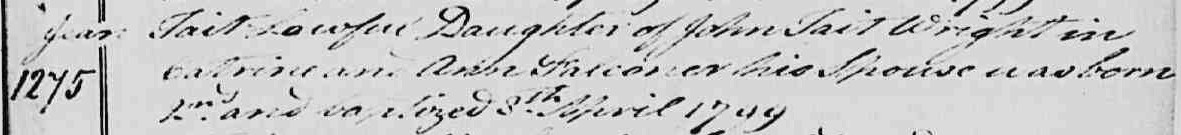 Jean Tait Lawful Daughter of John Tait Wright in
1275 Catrine and Ann Falconer his Spouse was born
2nd and baptized 8th April 1799